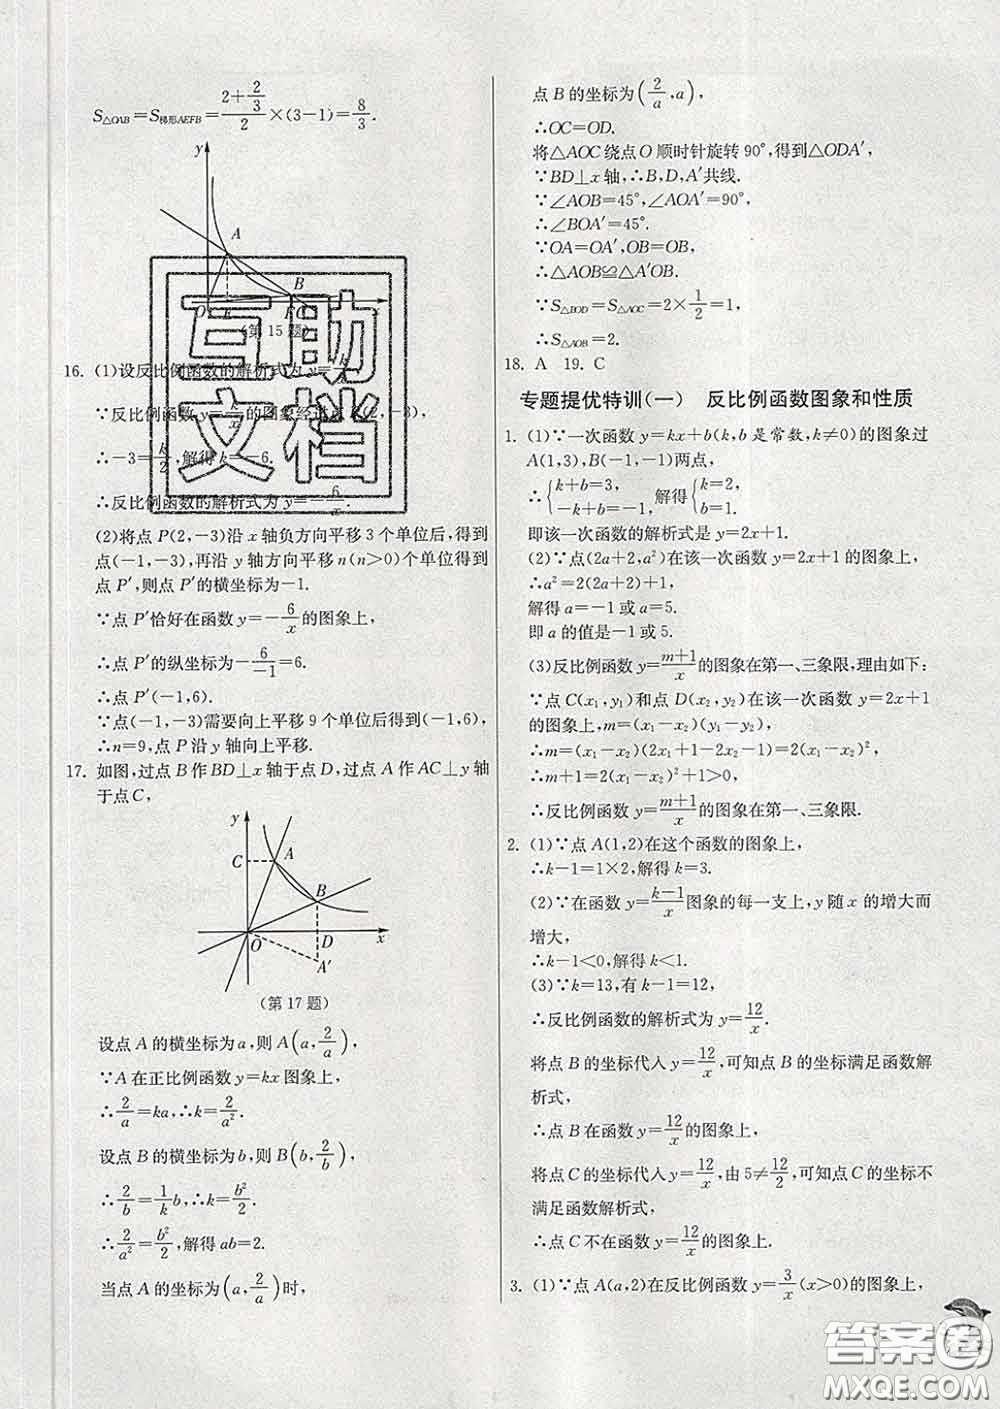 S△OAB=S梯形AEFB=(2+2/3)/2×(3-1)=8/3.
y
A
B
O
E
F
x
(第15题)
16. (1)设反比例函数的解析式为y=k/x,
∵反比例函数y=k/x的图象经过点P(2,-3),
∴-3=k/2,解得k=-6.
∴反比例函数的解析式为y=-6/x.
(2)将点P(2,-3)沿x轴负方向平移3个单位后,得到
点(-1,-3),再沿y轴方向平移n(n>0)个单位得到
点P′,则点P′的横坐标为-1.
∵点P′恰好在函数y=-6/x的图象上,
∴点P′的纵坐标为-6/-1=6.
∴点P′(-1,6).
∵点(-1,-3)需要向上平移9个单位后得到(-1,6),
∴n=9,点P沿y轴向上平移.
17. 如图,过点B作BD⊥x轴于点D,过点A作AC⊥y轴
于点C,
y
C
A
B
O
D
x
A′
(第17题)
设点A的横坐标为a,则A(a,2/a),
∵A在正比例函数y=kx图象上,
∴2/a=ka,∴k=2/a².
设点B的横坐标为b,则B(b,2/b),
∴2/b=1/k b,∴k=b²/2.
∴2/a²=b²/2,解得ab=2.
当点A的坐标为(a,2/a)时,
点B的坐标为(2/a,a),
∴OC=OD.
将△AOC绕点O顺时针旋转90°,得到△ODA′,
∵BD⊥x轴,∴B,D,A′共线.
∵∠AOB=45°,∠AOA′=90°,
∴∠BOA′=45°.
∵OA=OA′,OB=OB,
∴△AOB≌△A′OB.
∵S△BOD=S△AOC=2×1/2=1,
∴S△AOB=2.
18. A 19. C
专题提优特训(一) 反比例函数图象和性质
1. (1)∵一次函数y=kx+b(k,b是常数,k≠0)的图象过
A(1,3),B(-1,-1)两点,
∴{k+b=3, -k+b=-1, 解得{k=2, b=1.
即该一次函数的解析式是y=2x+1.
(2)∵点(2a+2,a²)在该一次函数y=2x+1的图象上,
∴a²=2(2a+2)+1,
解得a=-1或a=5.
即a的值是-1或5.
(3)反比例函数y=m+1/x的图象在第一、三象限,理由如下:
∵点C(x₁,y₁)和点D(x₂,y₂)在该一次函数y=2x+1
的图象上,m=(x₁-x₂)(y₁-y₂),
∴m=(x₁-x₂)(2x₁+1-2x₂-1)=2(x₁-x₂)²,
∴m+1=2(x₁-x₂)²+1>0,
∴反比例函数y=m+1/x的图象在第一、三象限.
2. (1)∵点A(1,2)在这个函数的图象上,
∴k-1=1×2,解得k=3.
(2)∵在函数y=k-1/x图象的每一支上,y随x的增大而
增大,
∴k-1<0,解得k<1.
(3)∵k=13,有k-1=12,
∴反比例函数的解析式为y=12/x.
将点B的坐标代入y=12/x,可知点B的坐标满足函数解
析式,
∴点B在函数y=12/x的图象上,
将点C的坐标代入y=12/x,由5≠12/2,可知点C的坐标不
满足函数解析式,
∴点C不在函数y=12/x的图象上.
3. (1)∵点A(a,2)在反比例函数y=3/x(x>0)的图象上,
互助
文档
答案卷
MXQE.COM